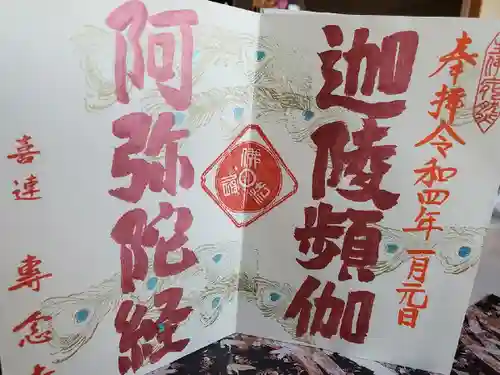 奉拝 令和四年 一月元日
迦陵頻伽
阿弥陀経
喜連 専念